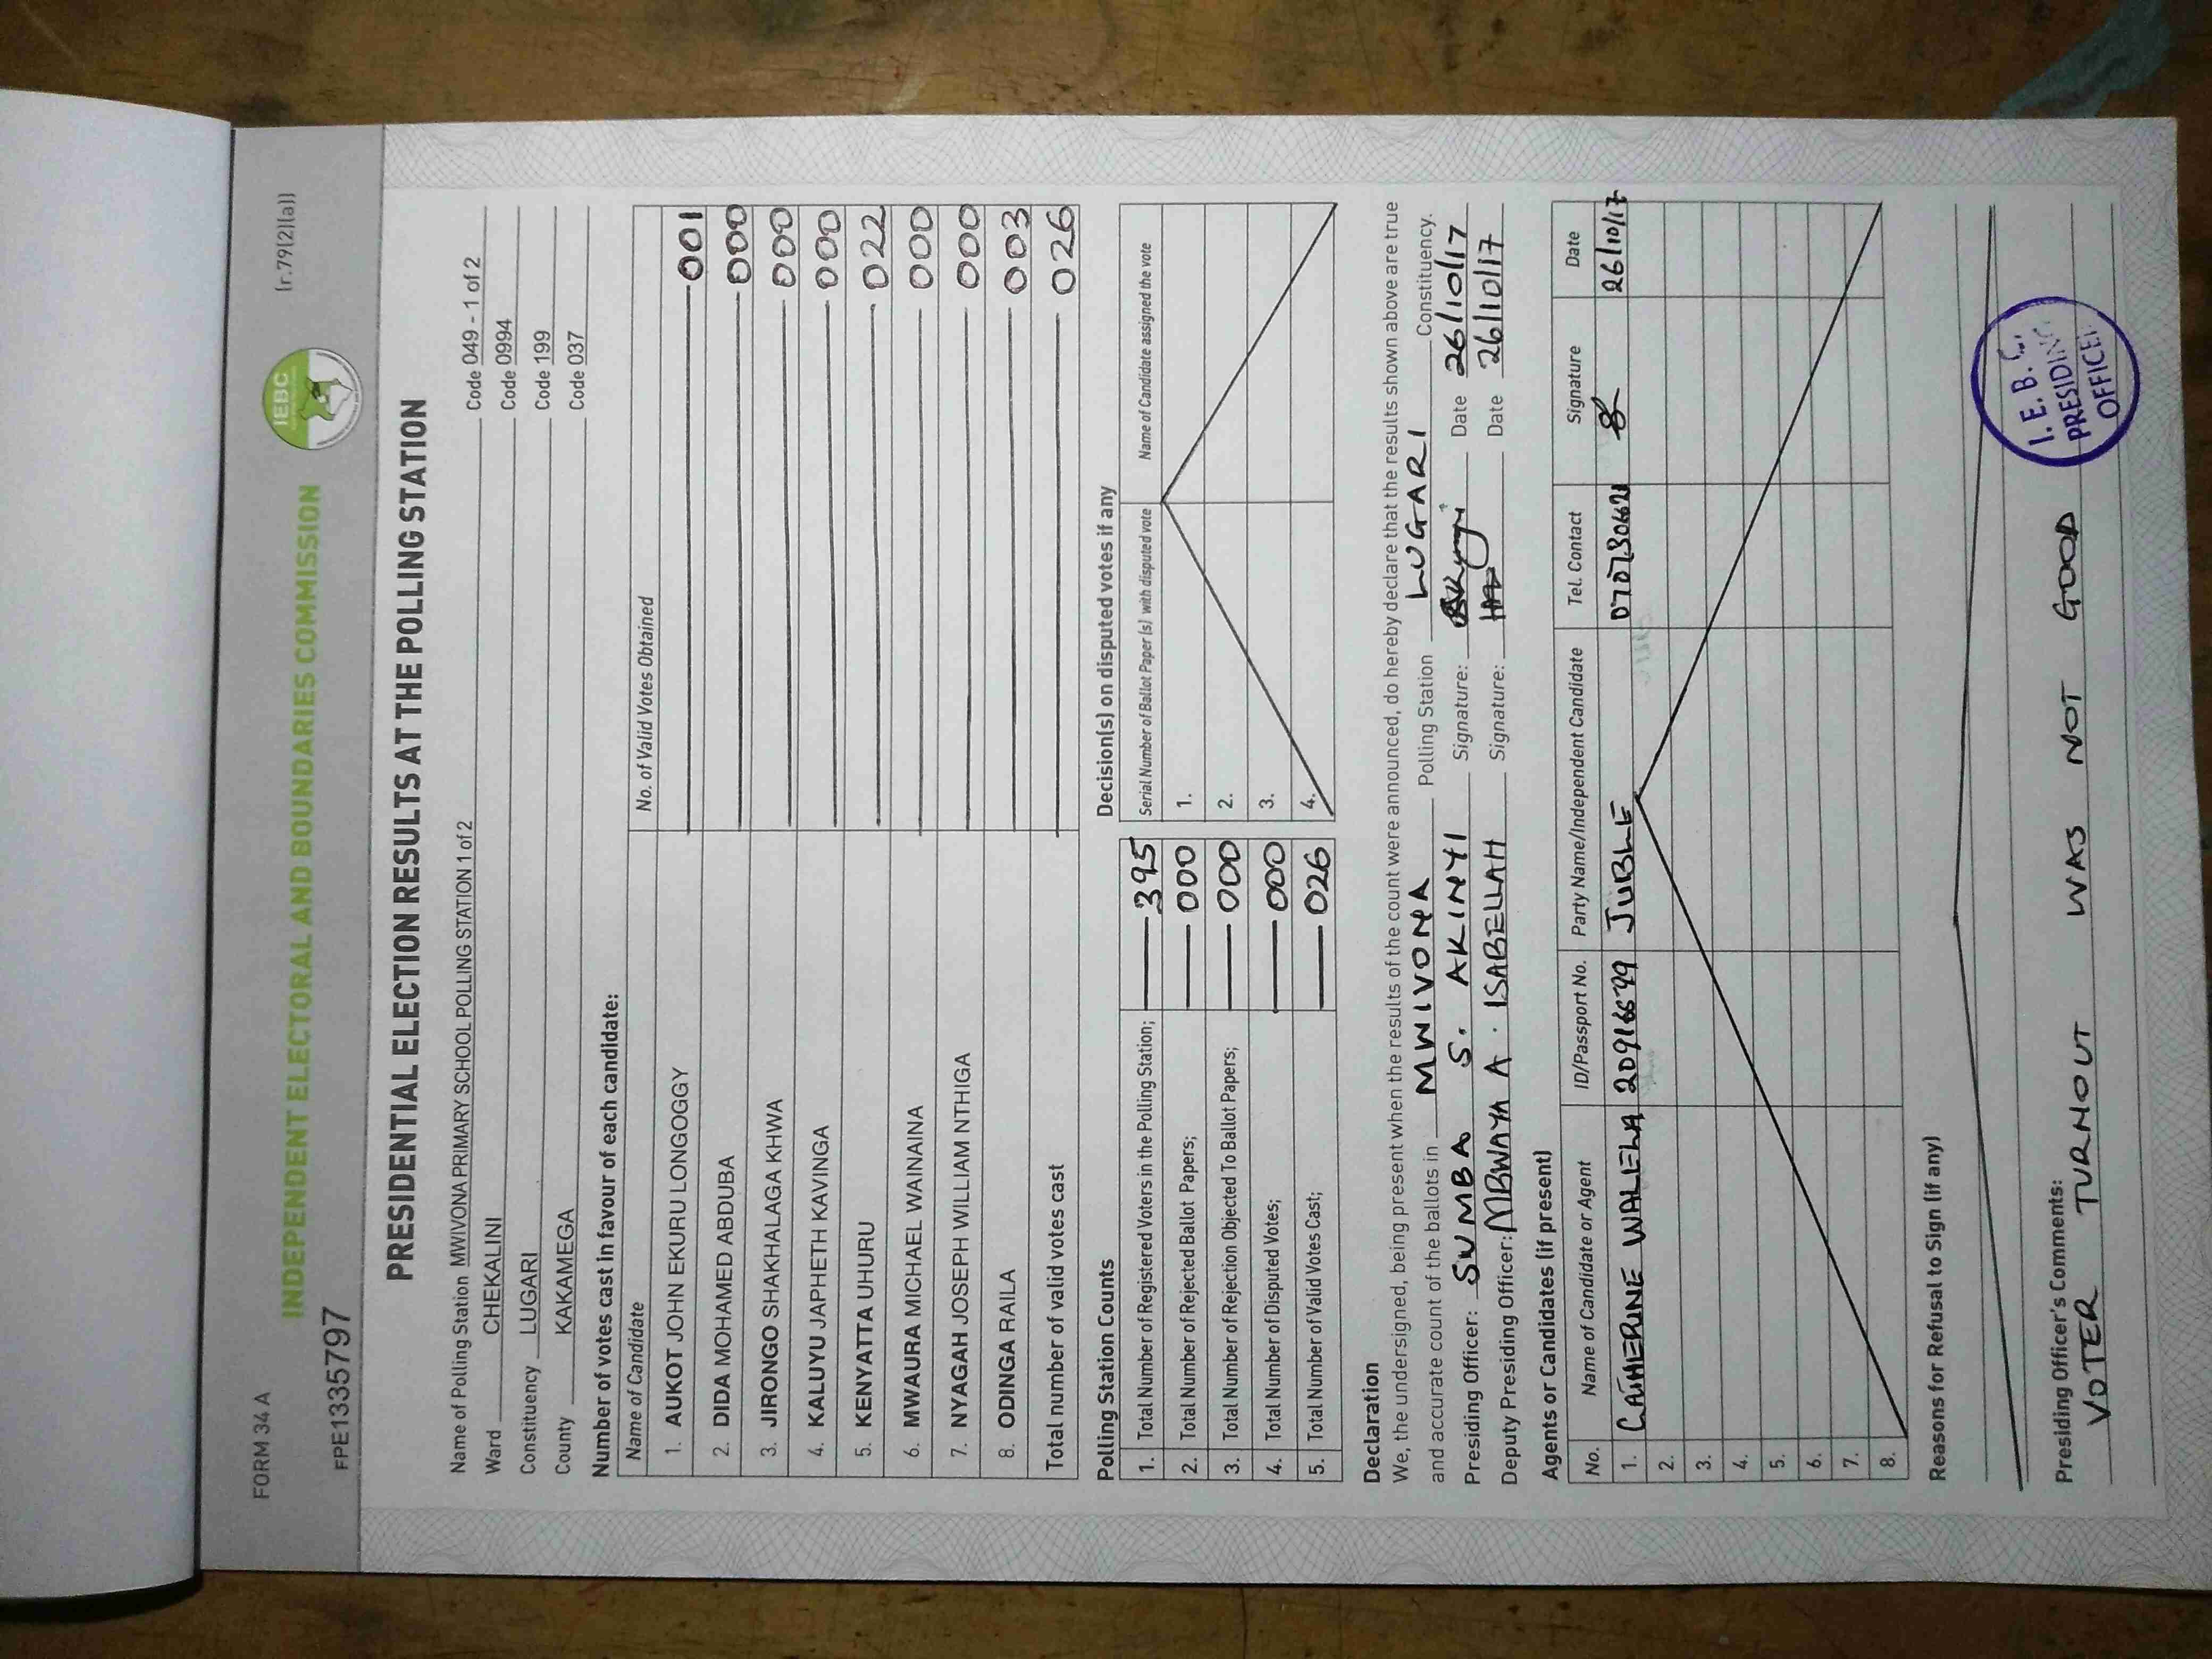 FORM 34 A
(r.79(2)(a))
IEBC
INDEPENDENT ELECTORAL AND BOUNDARIES COMMISSION
FPE1335797
PRESIDENTIAL ELECTION RESULTS AT THE POLLING STATION
Name of Polling Station MWIVONA PRIMARY SCHOOL POLLING STATION 1 of 2 Code 049 - 1 of 2
Ward CHEKALINI Code 0994
Constituency LUGARI Code 199
County KAKAMEGA Code 037
Number of votes cast in favour of each candidate:
Name of Candidate No. of Valid Votes Obtained
1. AUKOT JOHN EKURU LONGOGGY 001
2. DIDA MOHAMED ABDUBA 000
3. JIRONGO SHAKHALAGA KHWA 000
4. KALUYU JAPHETH KAVINGA 000
5. KENYATTA UHURU 022
6. MWAURA MICHAEL WAINAINA 000
7. NYAGAH JOSEPH WILLIAM NTHIGA 000
8. ODINGA RAILA 003
Total number of valid votes cast 026
Polling Station Counts
1. Total Number of Registered Voters in the Polling Station; 395
2. Total Number of Rejected Ballot Papers; 000
3. Total Number of Rejection Objected To Ballot Papers; 000
4. Total Number of Disputed Votes; 000
5. Total Number of Valid Votes Cast; 026
Decision(s) on disputed votes if any
Serial Number of Ballot Paper (s) with disputed vote Name of Candidate assigned the vote
1.
2.
3.
4.
Declaration
We, the undersigned, being present when the results of the count were announced, do hereby declare that the results shown above are true
and accurate count of the ballots in MWIVONA Polling Station LUGARI Constituency.
Presiding Officer: SUMBA S. AKINYI Signature: Date 26/10/17
Deputy Presiding Officer: MBWAYA A. ISABELLAH Signature: Date 26/10/17
Agents or Candidates (if present)
No. Name of Candidate or Agent ID/Passport No. Party Name/Independent Candidate Tel. Contact Signature Date
1. CATHERINE WALELA 20916699 JUBLEE 26/10/17
2.
3.
4.
5.
6.
7.
8.
Reasons for Refusal to Sign (if any)
Presiding Officer's Comments:
VOTER TURNOUT WAS NOT GOOD
I.E.B.C.
PRESIDING
OFFICER